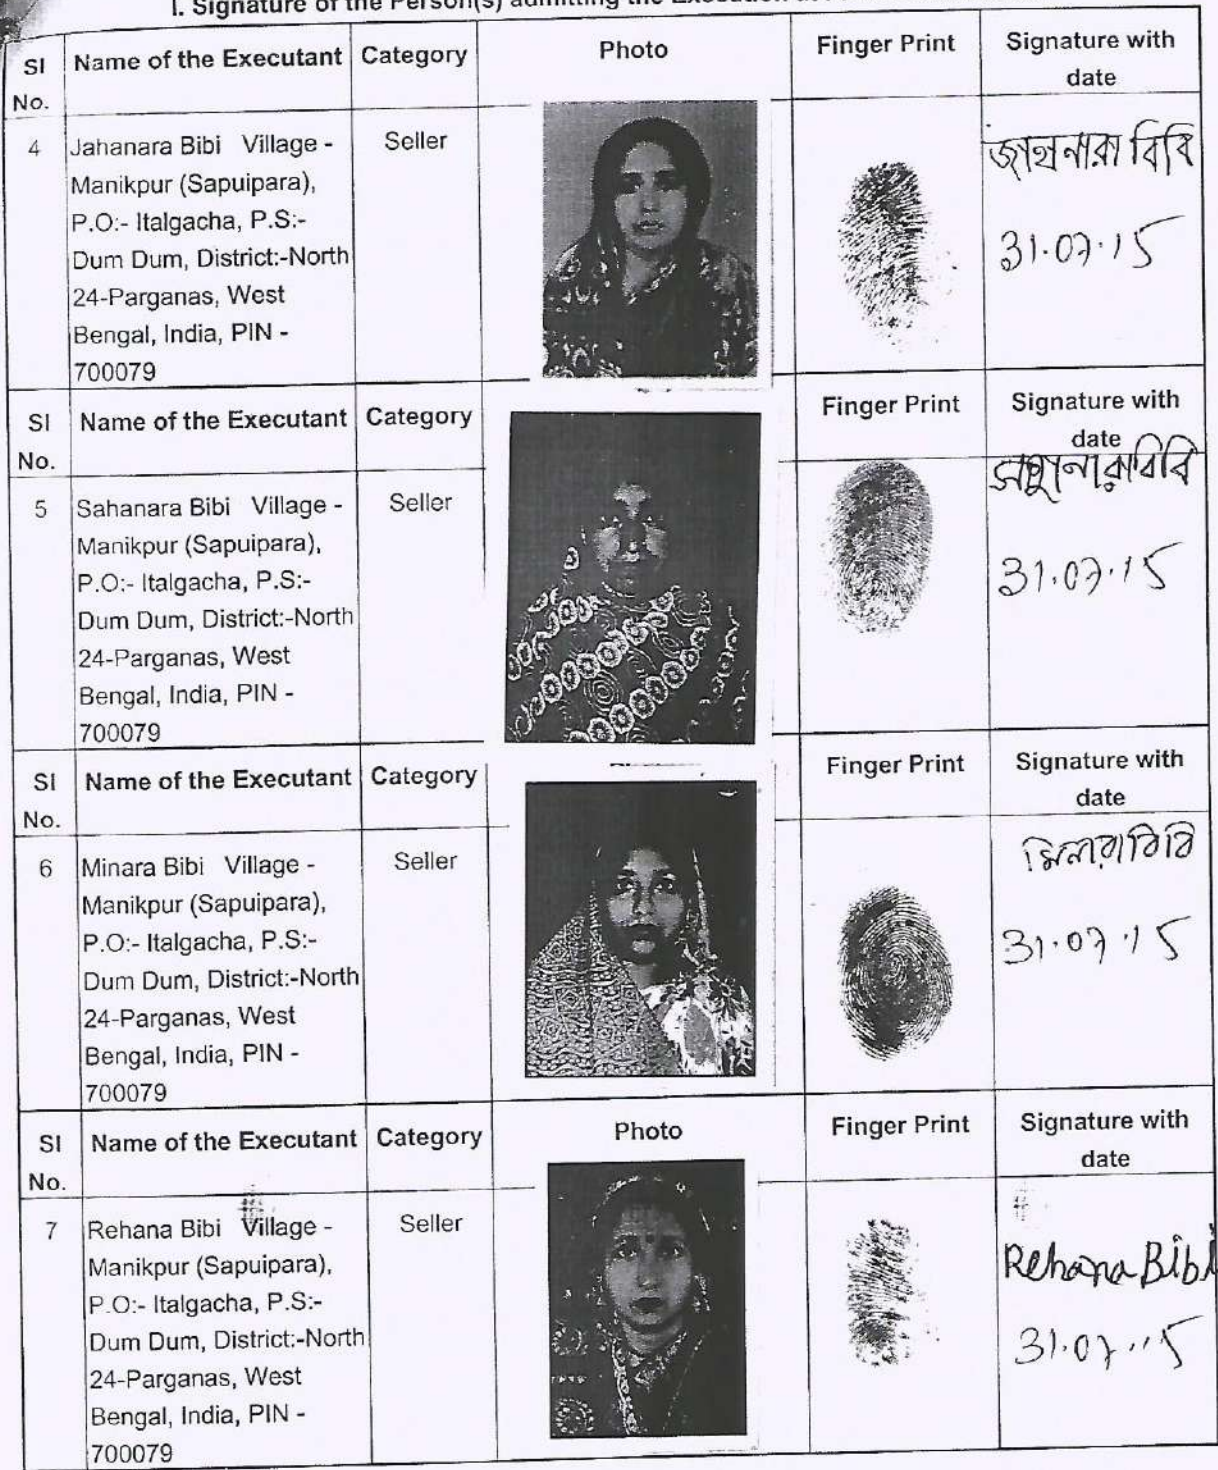 I. Signature of the Person(s) admitting the Execution
SI No. Name of the Executant Category Photo Finger Print Signature with date
4 Jahanara Bibi Village - Seller
Manikpur (Sapuipara),
P.O:- Italgacha, P.S:-
Dum Dum, District:-North
24-Parganas, West
Bengal, India, PIN -
700079
জাহানারা বিবি
31.07.15
SI No. Name of the Executant Category Finger Print Signature with date
5 Sahanara Bibi Village - Seller
Manikpur (Sapuipara),
P.O:- Italgacha, P.S:-
Dum Dum, District:-North
24-Parganas, West
Bengal, India, PIN -
700079
বিবি
31.07.15
SI No. Name of the Executant Category Finger Print Signature with date
6 Minara Bibi Village - Seller
Manikpur (Sapuipara),
P.O:- Italgacha, P.S:-
Dum Dum, District:-North
24-Parganas, West
Bengal, India, PIN -
700079
মিনারা বিবি
31.07.15
SI No. Name of the Executant Category Photo Finger Print Signature with date
7 Rehana Bibi Village - Seller
Manikpur (Sapuipara),
P.O:- Italgacha, P.S:-
Dum Dum, District:-North
24-Parganas, West
Bengal, India, PIN -
700079
Rehana Bibi
31.07.15